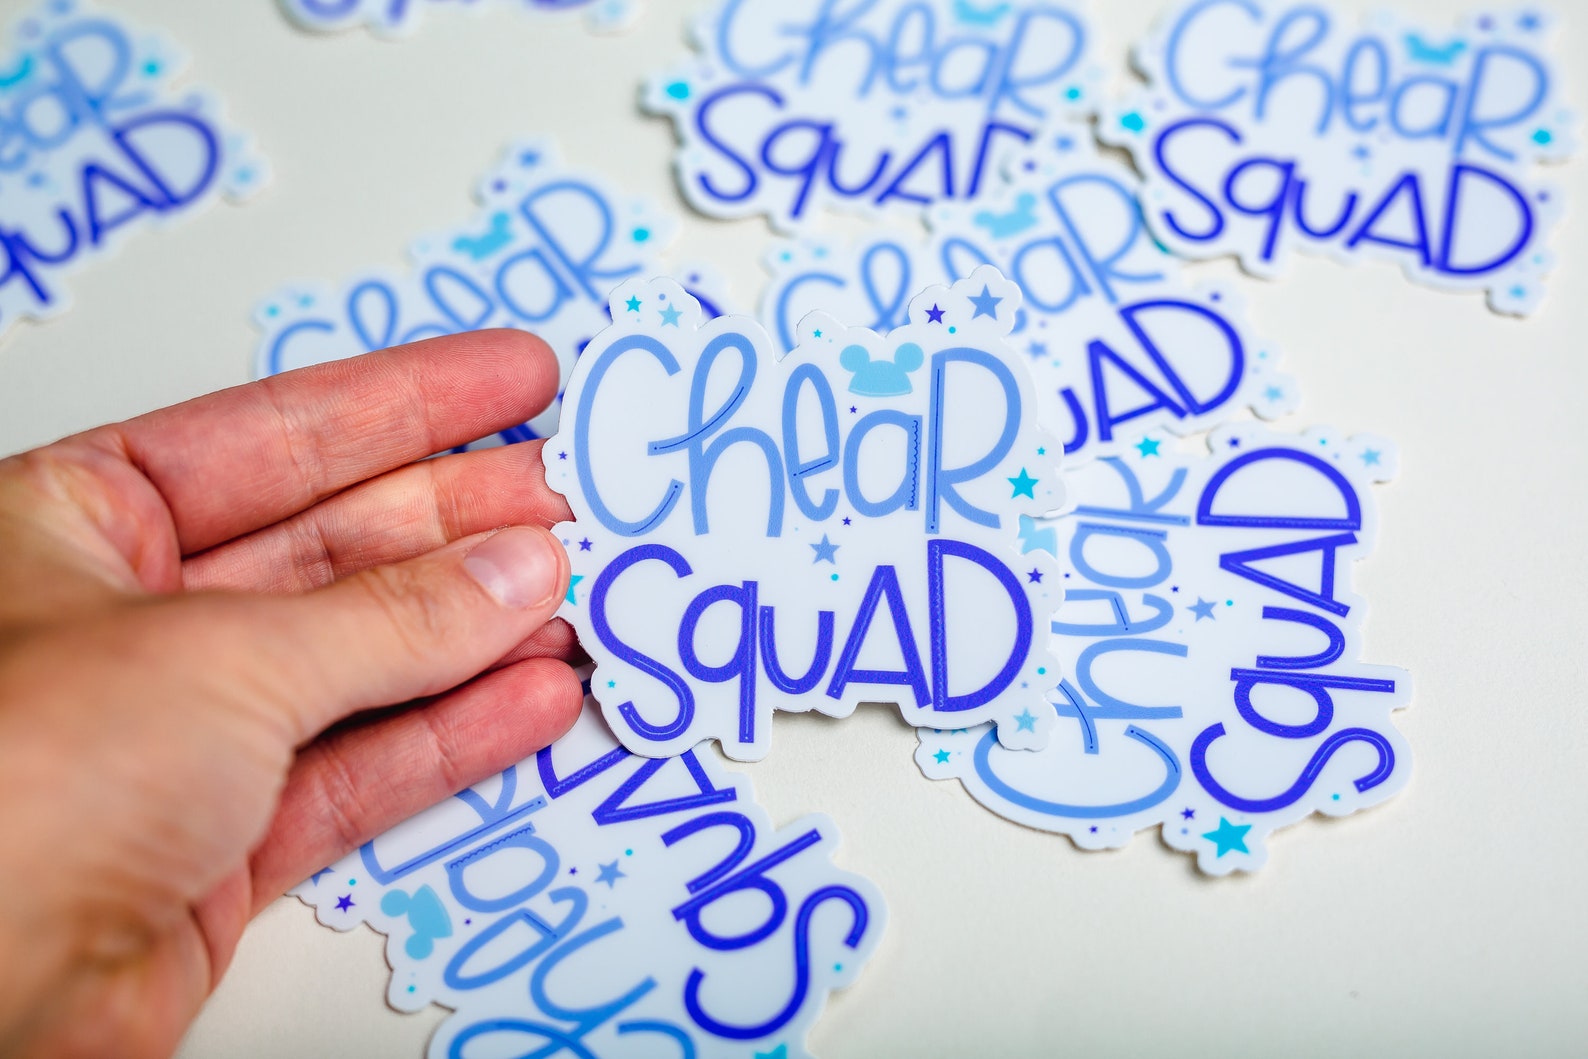 CheaR
SquAD
CheaR
SquAD
CheaR
SquAD
CheaR
SquAD
CheaR
CheaR
SquAD
CheaR
SquAD
CheaR
SquAD